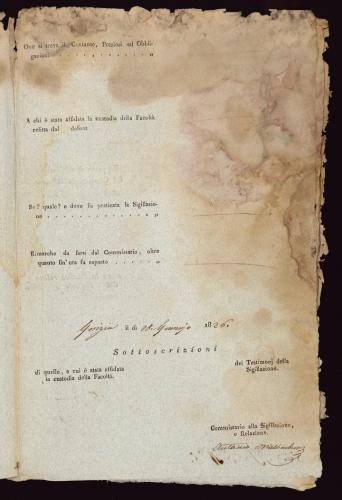 Ove si trova il Contante, Preziosi ed Obbli-
gazioni . . . . . . . . . . . „
A chi è stata affidata la custodia della Facoltà
relitta dal defont
Se? quale? e dove fu praticata la Sigillazio-
ne . . . . . . . . . . . . . „
Rimarche da farsi dal Commissario, oltre
quanto fin'ora fu esposto . . . . . „
Gorizia li di 18. Gennajo 1826.
Sottoscrizioni
di quello, a cui è stata affidata
la custodia della Facoltà.
dei Testimonj della
Sigillazione.
Commissario alla Sigillazione,
e Relazione.
Antonio